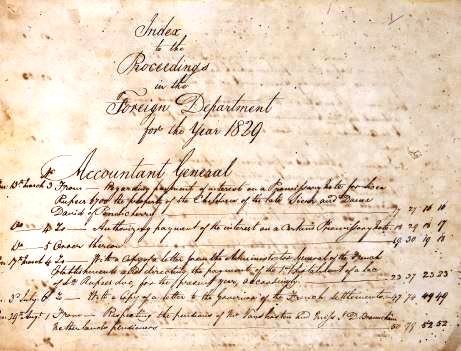 Index
to the
Proceedings
in the
Foreign Department
for the Year 1829
Accountant General
March 3 From — Regarding payment of interest on a Promissory Note for
Rupees the property of the Children of the late and
David of Pondicherry 27 16 16
Do — To — Authorizing payment of the interest on a certain Promissory Note 18 29 18 17
Do — 5 Order thereon 19 30 19 18
17th March 4 To — With a Copy of a letter from the Administrator General of the French
Establishments and directing the payment of the 1st Instalment of a lac
of Rupees due, for the present year, accordingly 23 37 23 23
3d July 6 To — With a Copy of a letter to the Governor of the French settlements 47 74 49 49
29th Augt 1 From — Reporting the pensions of Mr and Miss
Netherlands pensioners 50 78 52 52